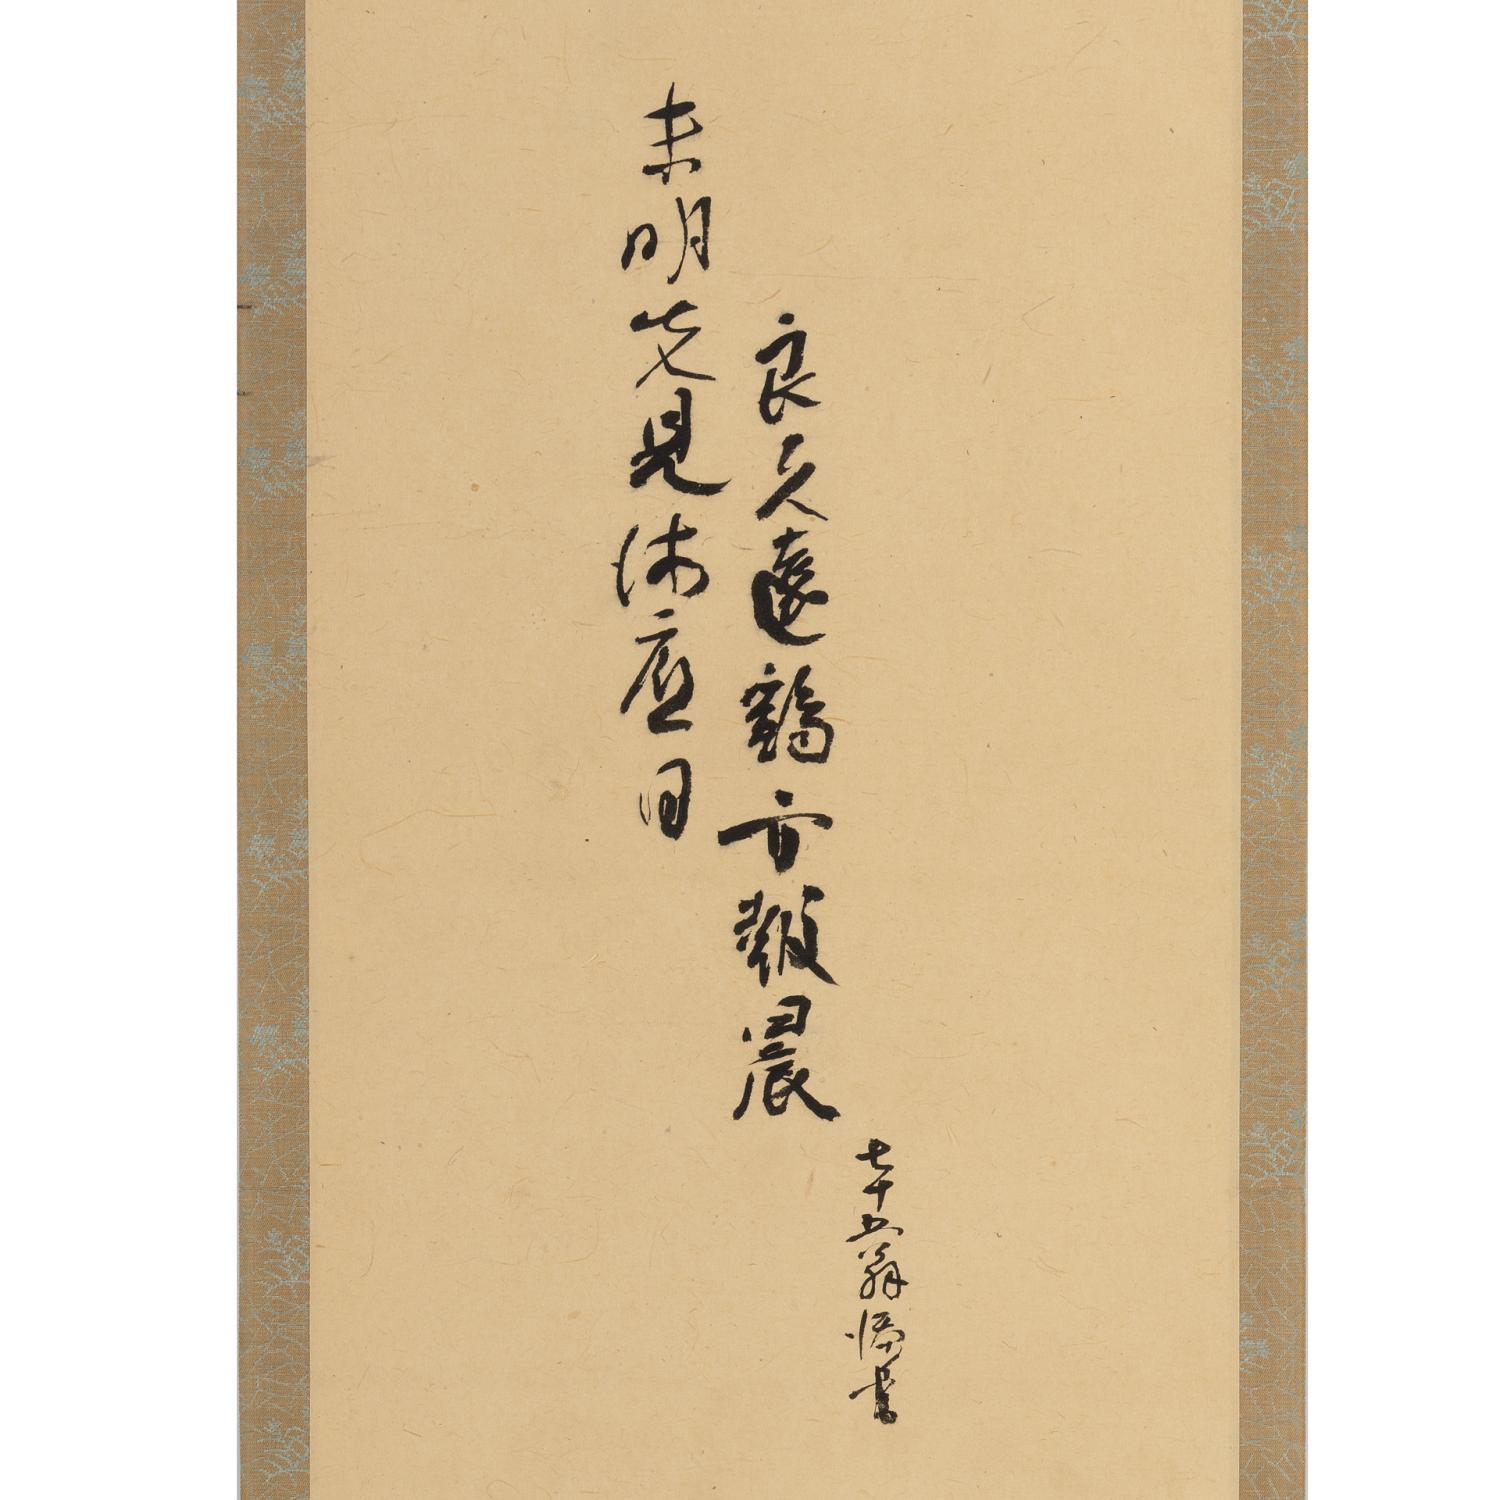 未明先見海底日
良久遠鶏方報晨
七十五翁書